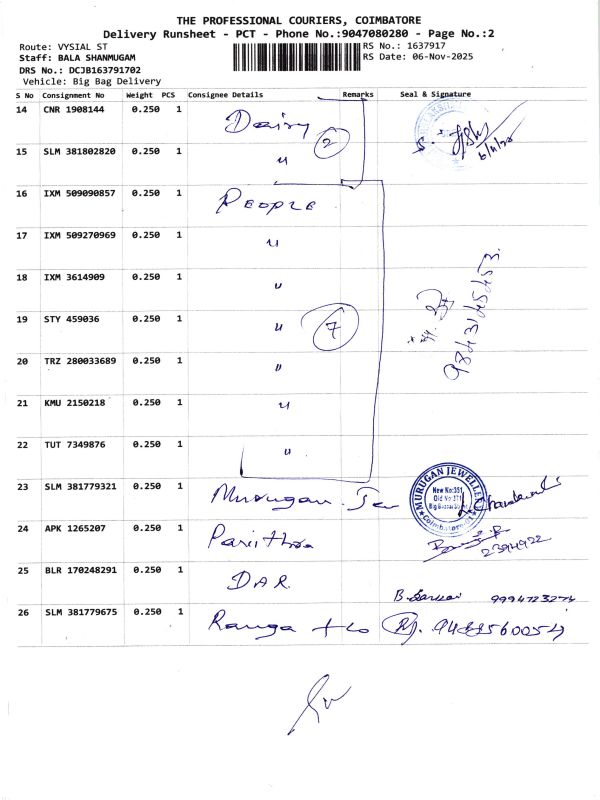 THE PROFESSIONAL COURIERS, COIMBATORE
Delivery Runsheet - PCT - Phone No.:9047080280 - Page No.:2
Route: VYSIAL ST
Staff: BALA SHANMUGAM
DRS No.: DCJB163791702
Vehicle: Big Bag Delivery
RS No.: 1637917
RS Date: 06-Nov-2025
S No Consignment No Weight PCS Consignee Details Remarks Seal & Signature
14 CNR 1908144 0.250 1 Dairy 2
15 SLM 381802820 0.250 1 〃
16 IXM 509090857 0.250 1 PEOPLE
17 IXM 509270969 0.250 1 〃
18 IXM 3614909 0.250 1 〃
19 STY 459036 0.250 1 〃 7
20 TRZ 280033689 0.250 1 〃
21 KMU 2150218 0.250 1 〃
22 TUT 7349876 0.250 1 〃
9843145453
23 SLM 381779321 0.250 1 Murugan Je
MURUGAN JEWELLERY
New No:351
Old No:371
Coimbatore
24 APK 1265207 0.250 1
2394922
25 BLR 170248291 0.250 1 DAR
26 SLM 381779675 0.250 1 Ranga